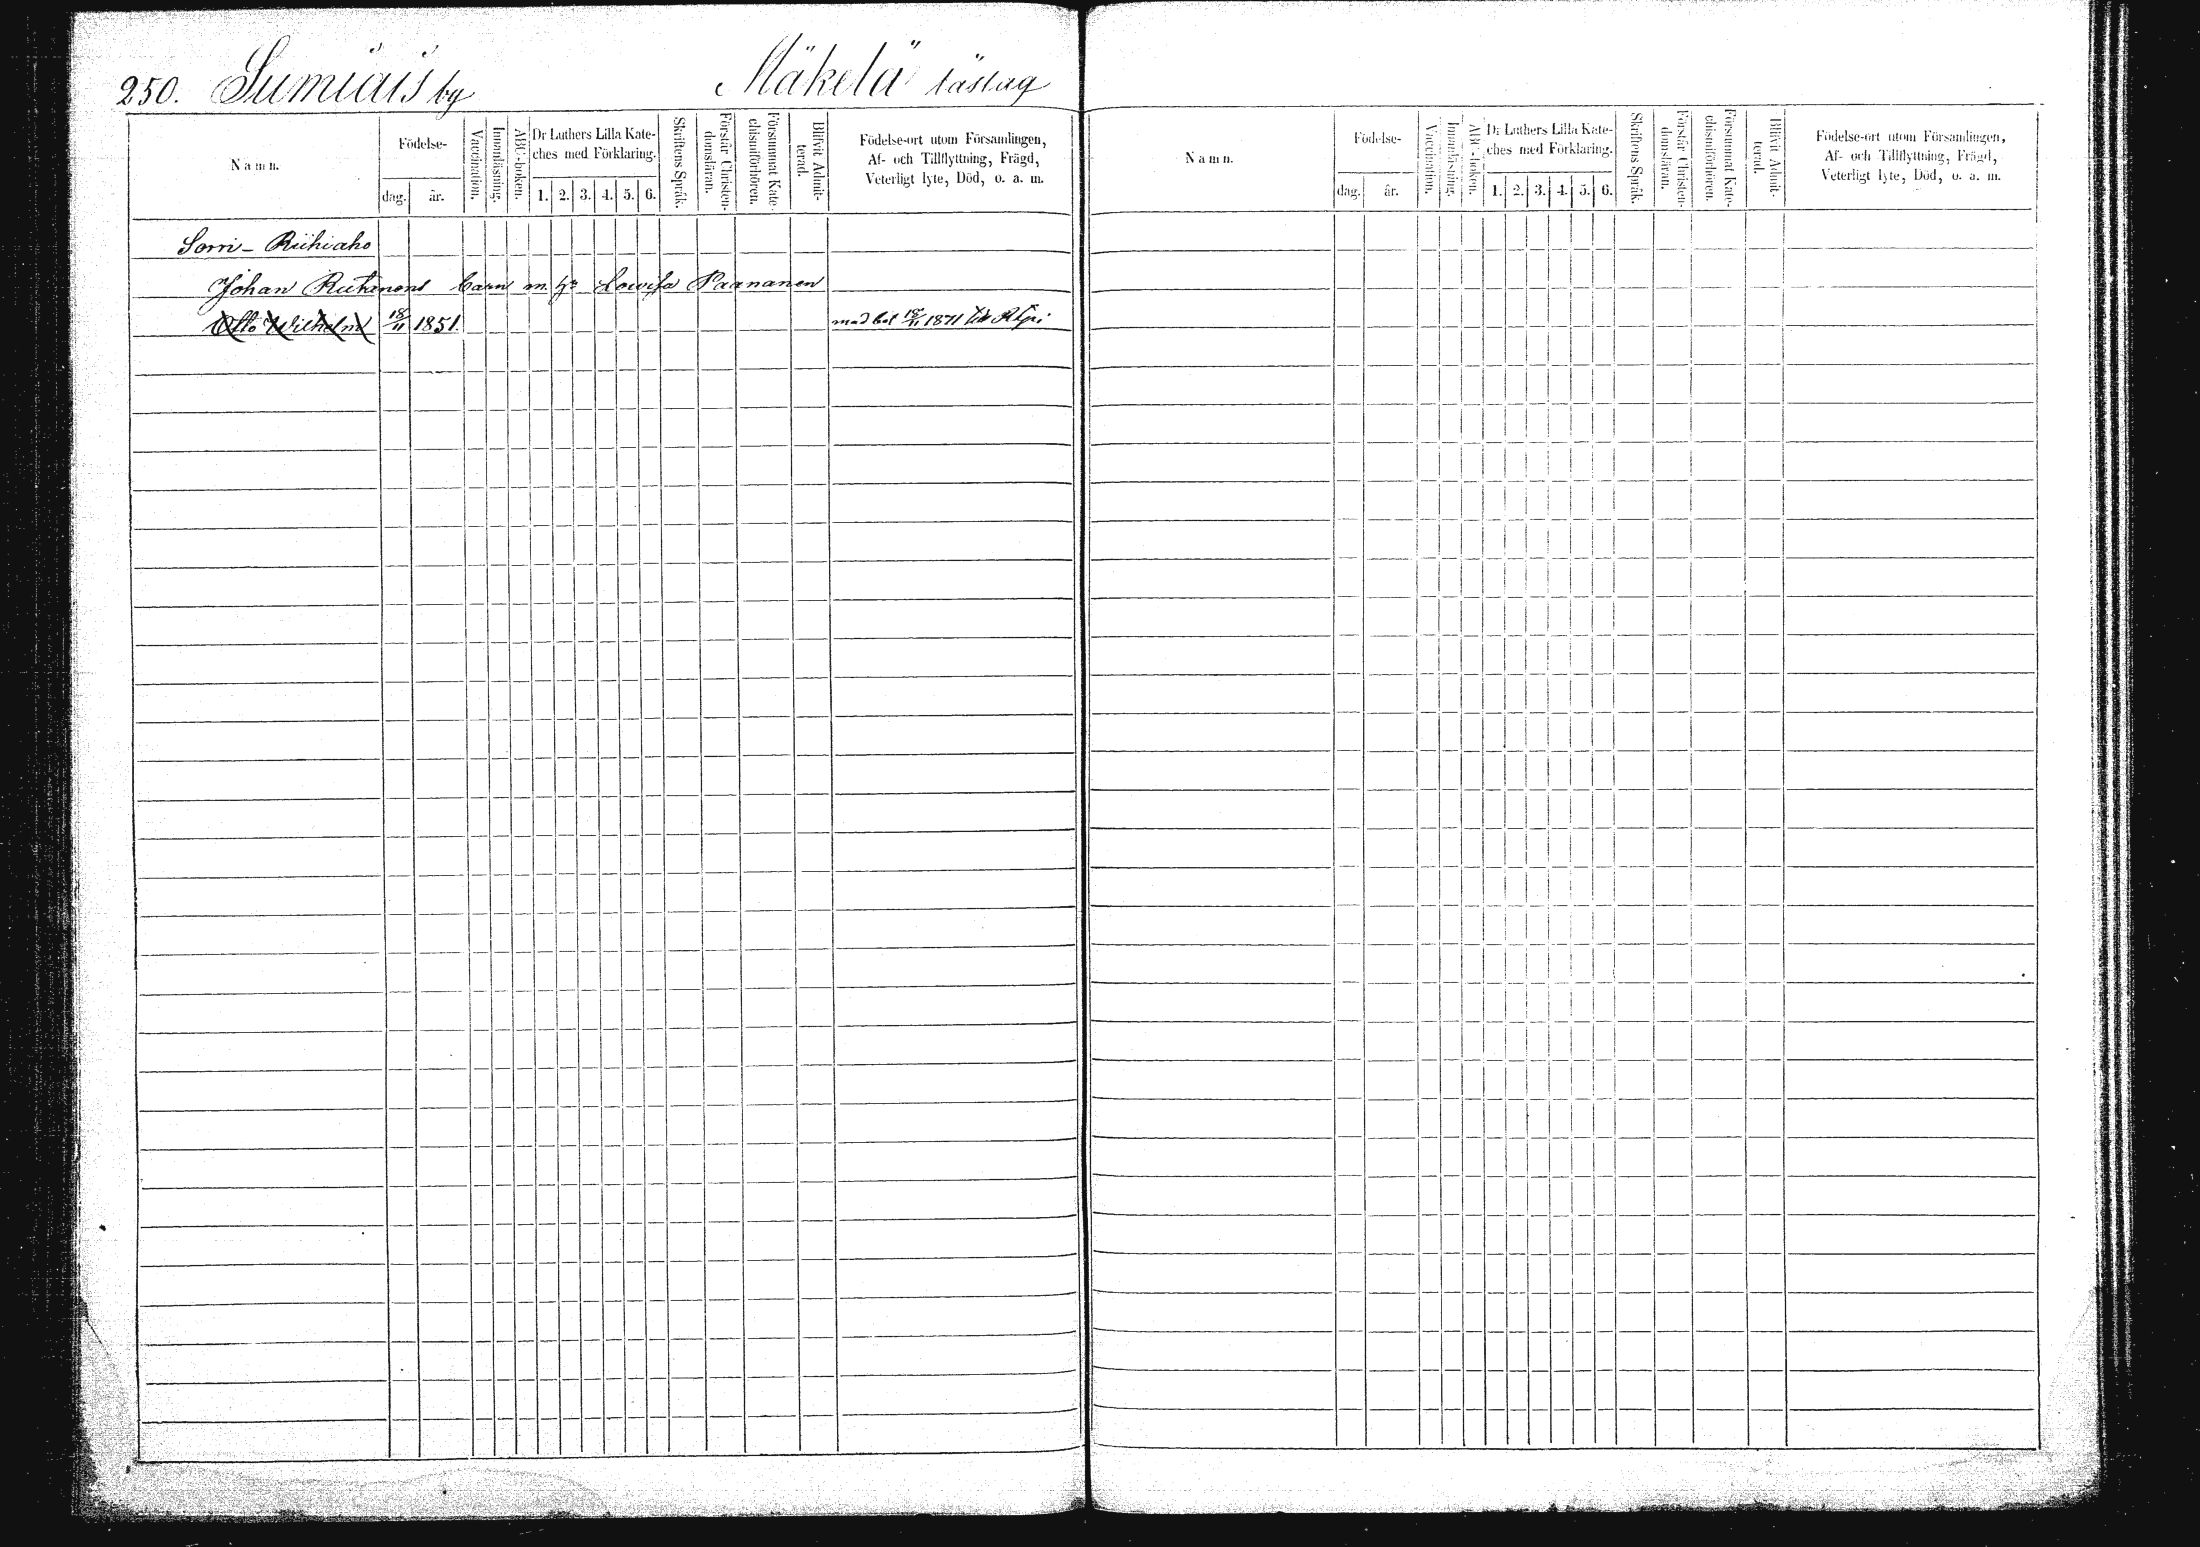 250. Sumiais by Mäkelä läslag
Namn.
Födelse-
dag. år.
Vaccination.
Innanläsning.
ABC-boken.
Dr Luthers Lilla Kate-
ches med Förklaring.
1. 2. 3. 4. 5. 6.
Skriftens Språk.
Förstår Christen-
domsläran.
Försummat Kate-
chismiförhören.
Blifvit Admit-
terad.
Födelse-ort utom Församlingen,
Af- och Tillflyttning, Frägd,
Veterligt lyte, Död, o. a. m.
Sorri - Riihiaho
Johan Rutanens barn m. h. Lovisa Paananen
Otto Wilhelm 18/11 1851 med bet 18/11 1871 till
Namn.
Födelse-
dag. år.
Vaccination.
Innanläsning.
ABC-boken.
Dr Luthers Lilla Kate-
ches med Förklaring.
1. 2. 3. 4. 5. 6.
Skriftens Språk.
Förstår Christen-
domsläran.
Försummat Kate-
chismiförhören.
Blifvit Admit-
terad.
Födelse-ort utom Församlingen,
Af- och Tillflyttning, Frägd,
Veterligt lyte, Död, o. a. m.